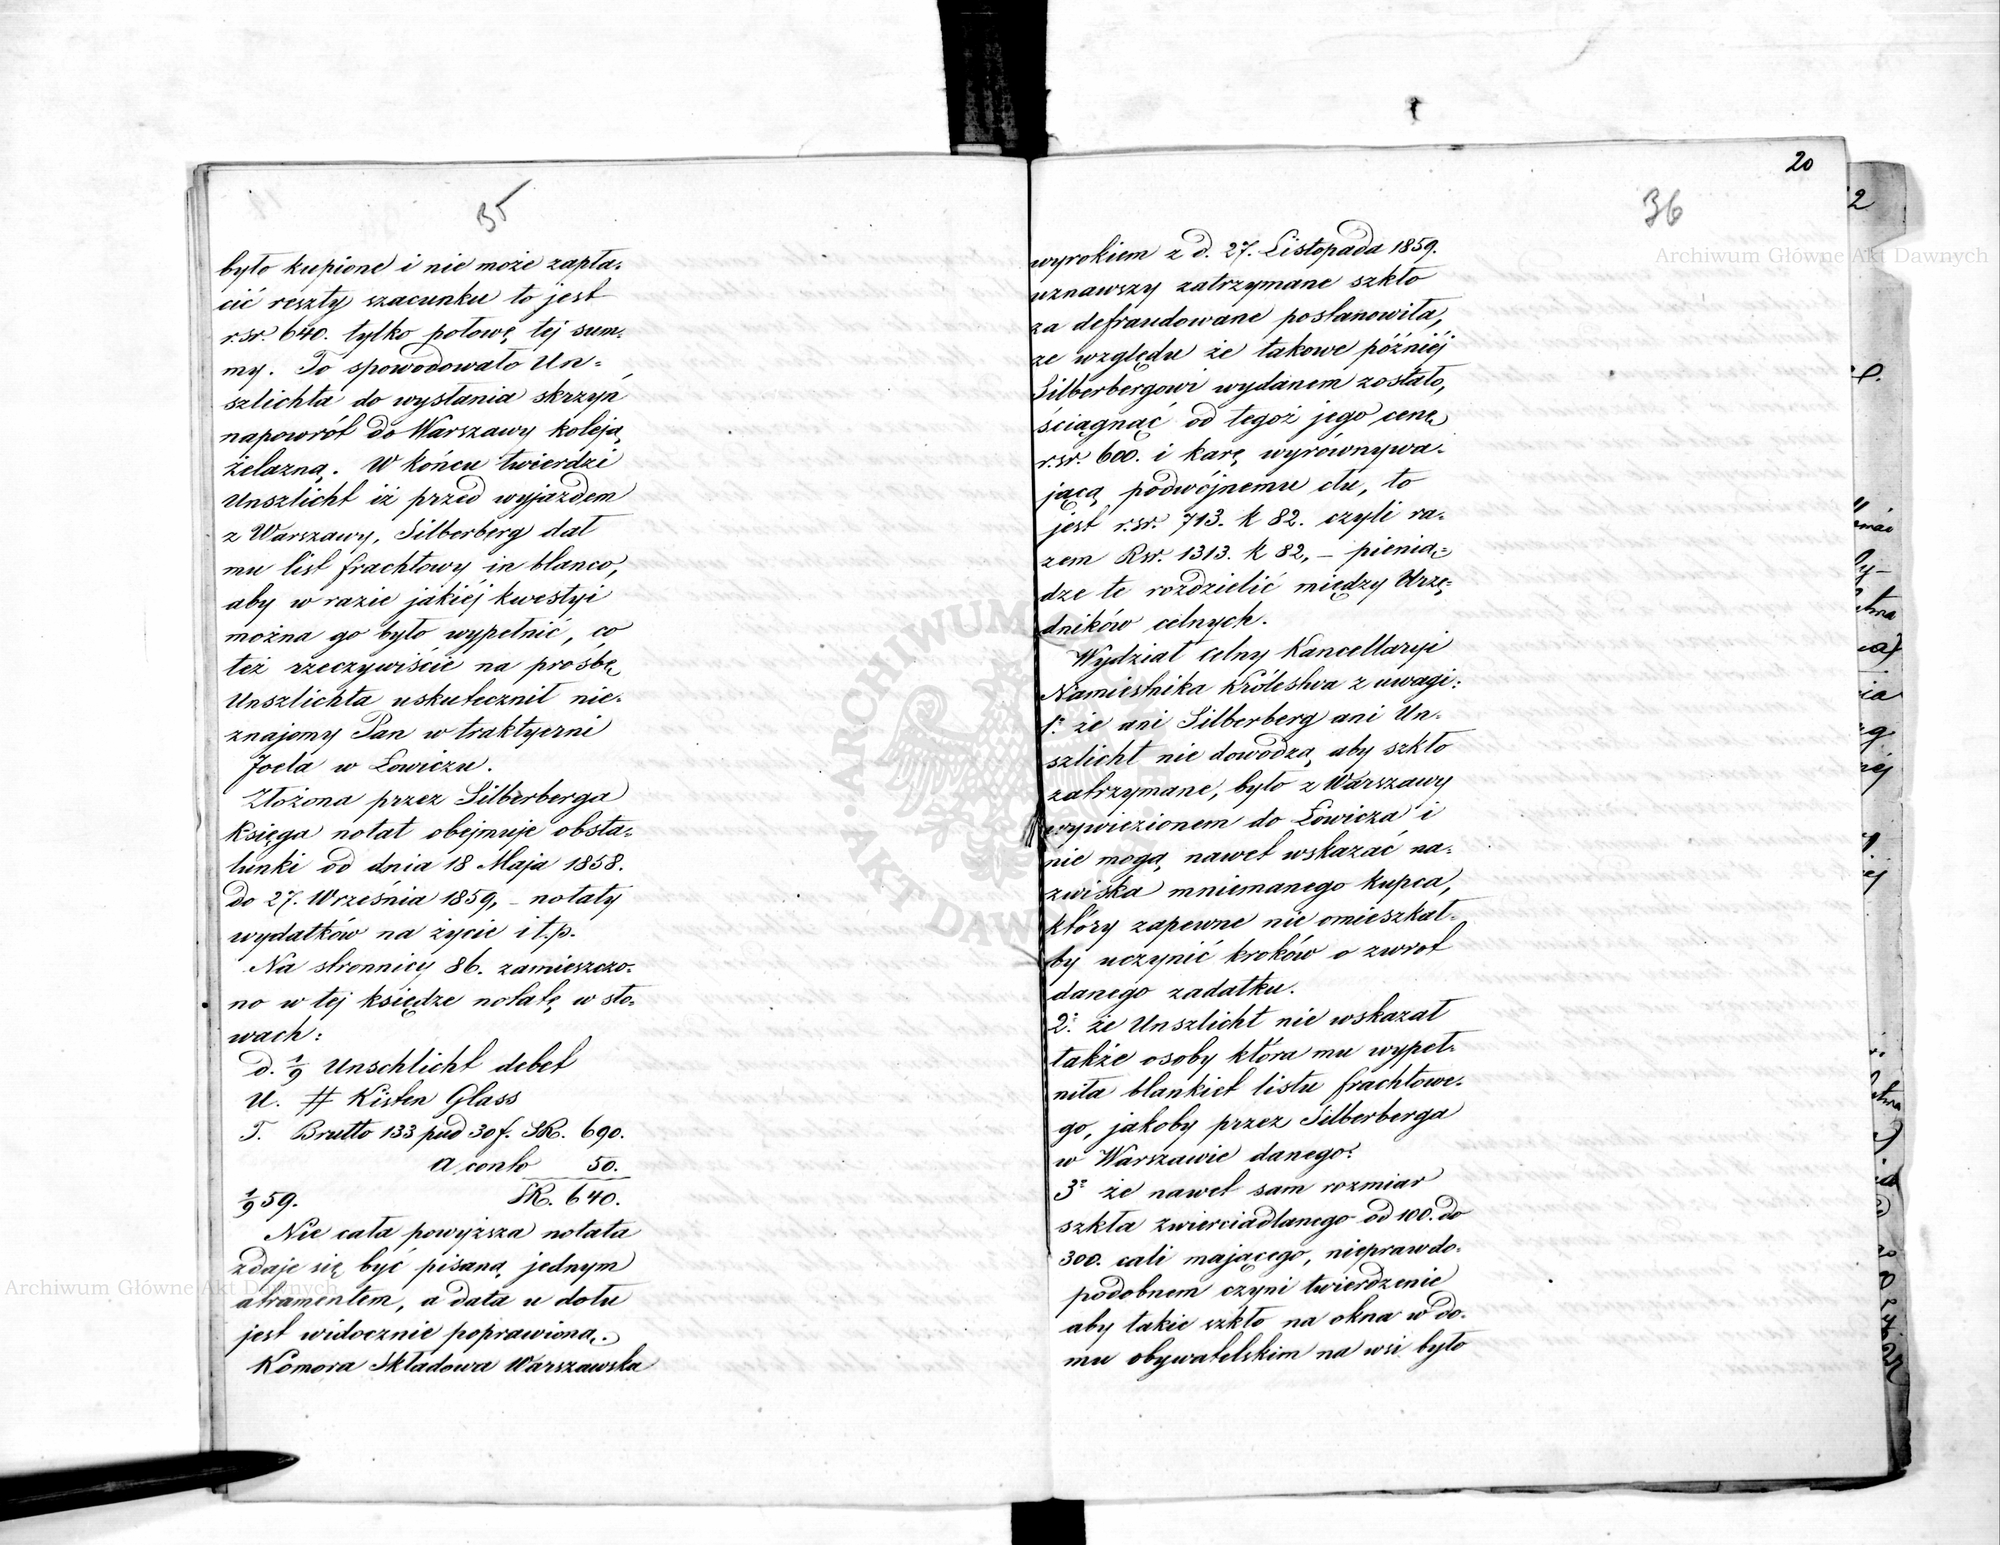 35
było kupione i nie może zapła-
cić reszty szacunku to jest
r.sr. 640. tylko połowę tej sum-
my. To spowodowało Un-
szlichta do wysłania skrzyń
napowrót do Warszawy koleją
żelazną. W końcu twierdzi
Unszlicht iż przed wyjazdem
z Warszawy, Silberberg dał
mu list frachtowy in blanco,
aby w razie jakiéj kwestyi
można go było wypełnić, co
też rzeczywiście na prośbę
Unszlichta uskutecznił nie-
znajomy Pan w traktyerni
Joela w Łowiczu.
Złożona przez Silberberga
Księga notat obejmuje obsta-
lunki od dnia 18 Maja 1858.
do 27. Września 1859, - notaty
wydatków na życie i t.p.
Na stronnicy 86. zamieszczo-
no w tej księdze notatę w sło-
wach:
d. 1/9 Unschlicht debet
U. # Kisten Glass
T. Brutto 133 pud 30 f. SR. 690.
a conto 50.
1/9 59. SR. 640.
Nie cała powyższa notata
zdaje się być pisaną jednym
atramentem, a data u dołu
jest widocznie poprawioną.
Komora Składowa Warszawska
20
36
wyrokiem z d. 27. Listopada 1859.
uznawszy zatrzymane szkło
za defraudowane postanowiła,
ze względu że takowe późniéj
Silberbergowi wydanem zostało,
ściągnąć od tegoż jego cenę
r.sr. 600. i karę wyrównywa-
jącą podwójnemu cłu, to
jest r.sr. 713. k 82. czyli ra-
zem Rsr. 1313. k 82, - pienią-
dze te rozdzielić między Urzę-
dników celnych.
Wydział Celny Kancellaryi
Namiestnika Królestwa z uwagi:
1º że ani Silberberg ani Un-
szlicht nie dowodzą aby szkło
zatrzymane, było z Warszawy
wywiezionem do Łowicza i
nie mogą nawet wskazać na-
zwiska mniemanego kupca,
który zapewne nie omieszkał-
by uczynić kroków o zwrot
danego zadatku.
2º że Unszlicht nie wskazał
także osoby która mu wypeł-
niła blankiet listu frachtowe-
go, jakoby przez Silberberga
w Warszawie danego.
3º że nawet sam rozmiar
szkła zwierciadlanego od 100. do
300. cali mającego, nieprawdo-
podobnem czyni twierdzenie
aby takie szkło na okna w do-
mu obywatelskim na wsi było
Archiwum Główne Akt Dawnych
Archiwum Główne Akt Dawnych